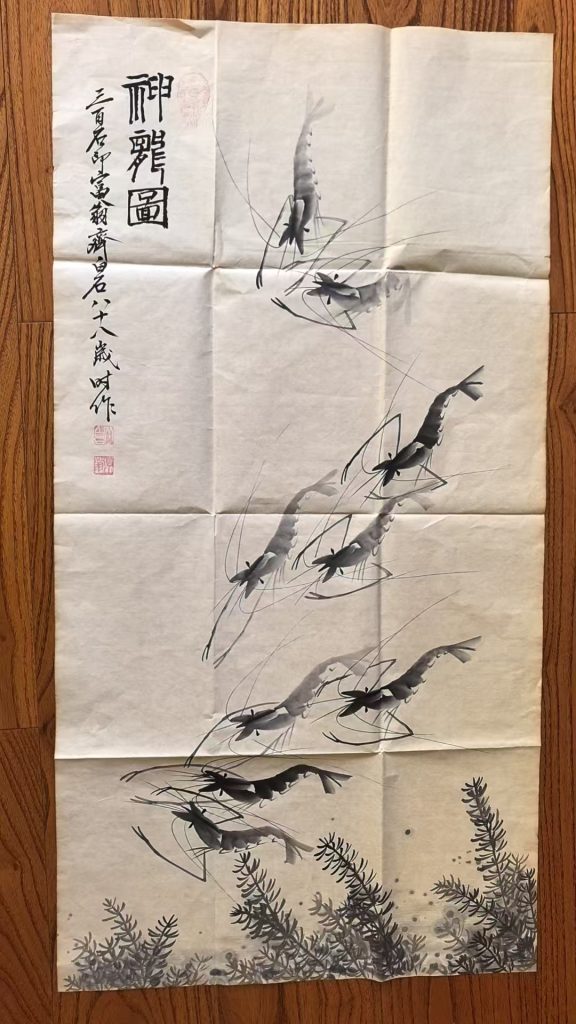 神龍圖
三百石印富翁齊白石八十八歲時作